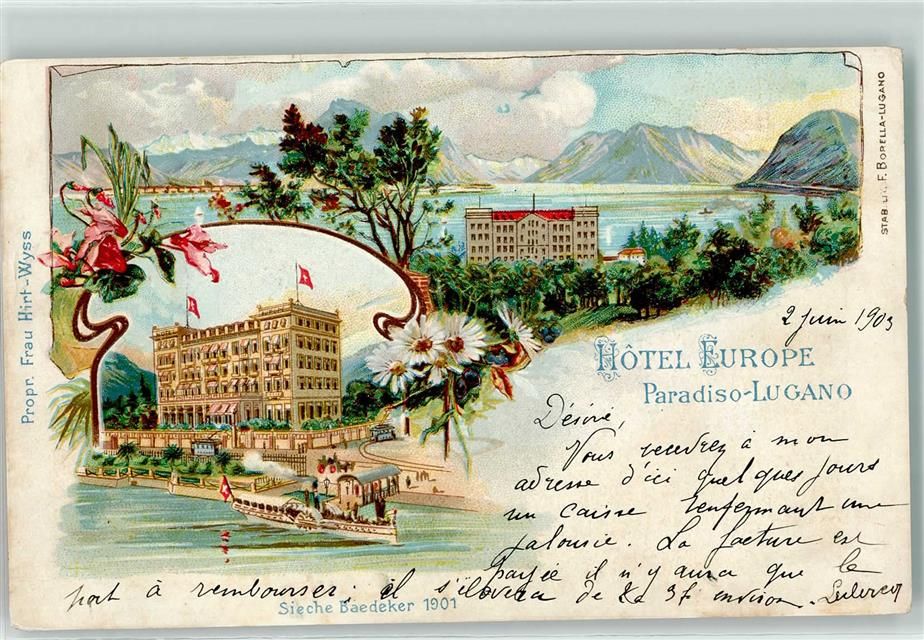 STAB. LIT. F. BORELLA-LUGANO
Propr. Frau Hirt-Wyss
2 juin 1903
HÔTEL EUROPE
Paradiso-LUGANO
Désiré,
Vous recevrez à mon
adresse d'ici quelques jours
un caisse renfermant une
jalousie. La facture est
payée il n'y aura que le
port à rembourser; il s'élèvera de 2 à 3f environ. Leclercq
Sieche Baedeker 1901